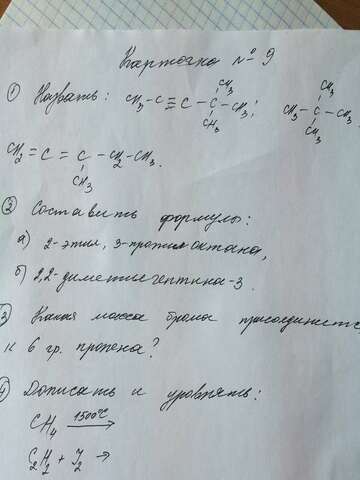 Карточка № 9
① Назвать: CH₃-C≡C-C(CH₃)(CH₃)-CH₃; CH₃-C(CH₃)(CH₃)-CH₃
CH₂=C=C(CH₃)-CH₂-CH₃.
② Составить формулы:
а) 2-этил, 3-пропил октана,
б) 2,2-диметилгептина-3.
③ Какая масса брома присоединится
к 6 гр. пропена?
④ Дописать и уровнять:
CH₄ 1500°C →
C₂H₂ + J₂ →